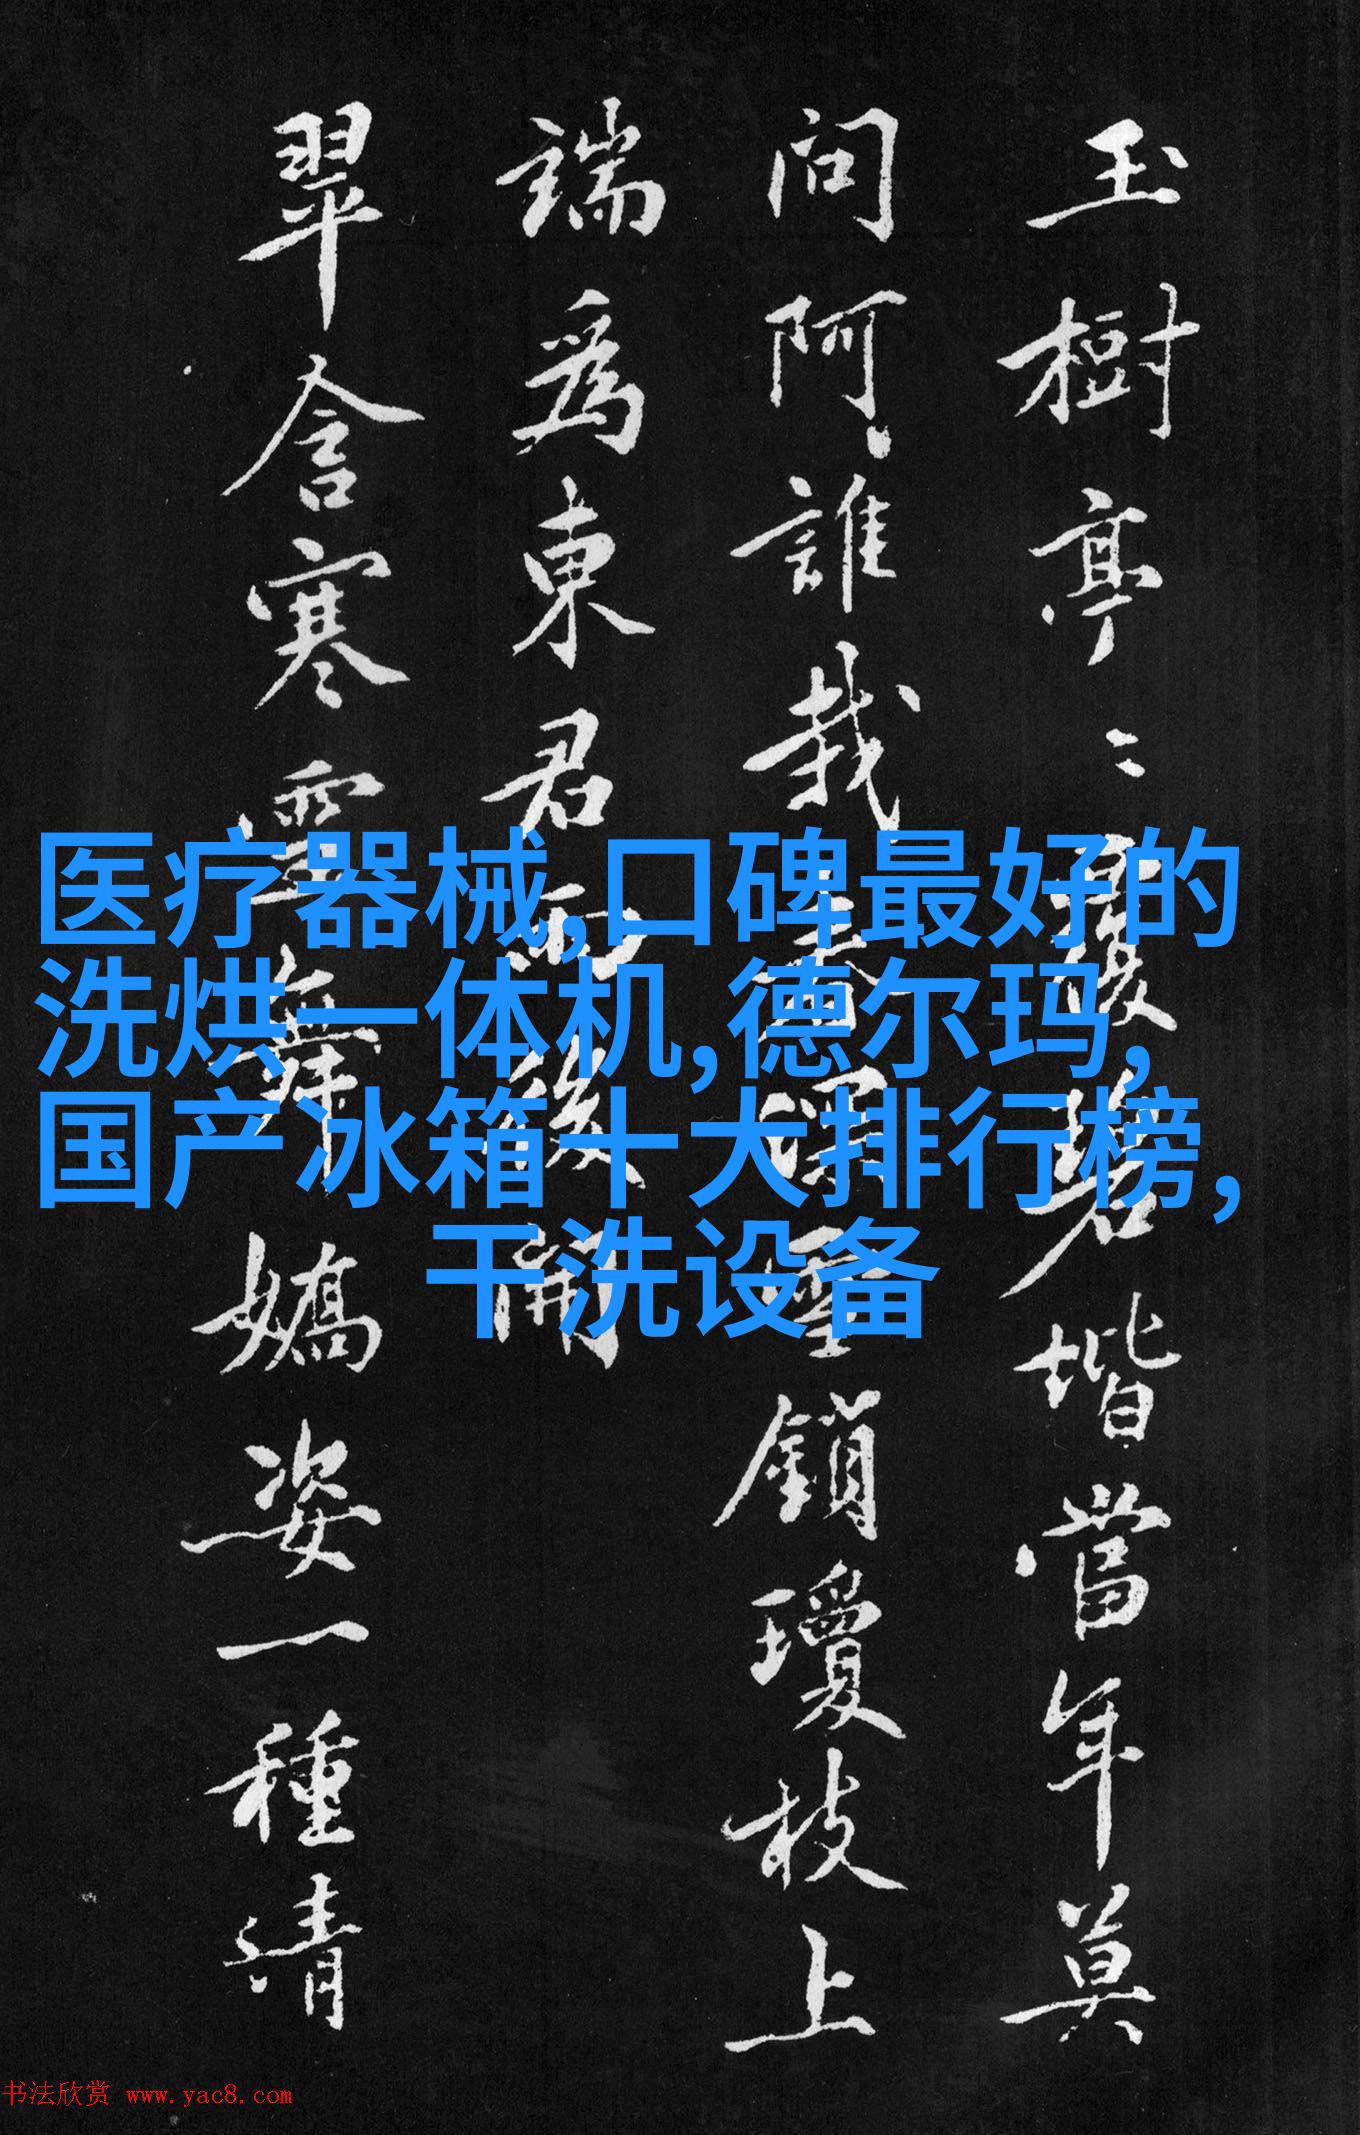 玉樹亭々覆碧堦當年莫
問阿誰栽春深雪鎖瓊枝上
端為東君雨後開
翠含寒舞嬌姿一種清
医疗器械,口碑最好的
洗烘一体机,德尔玛,
国产冰箱十大排行榜,
干洗设备
书法欣赏 www.yac8.com